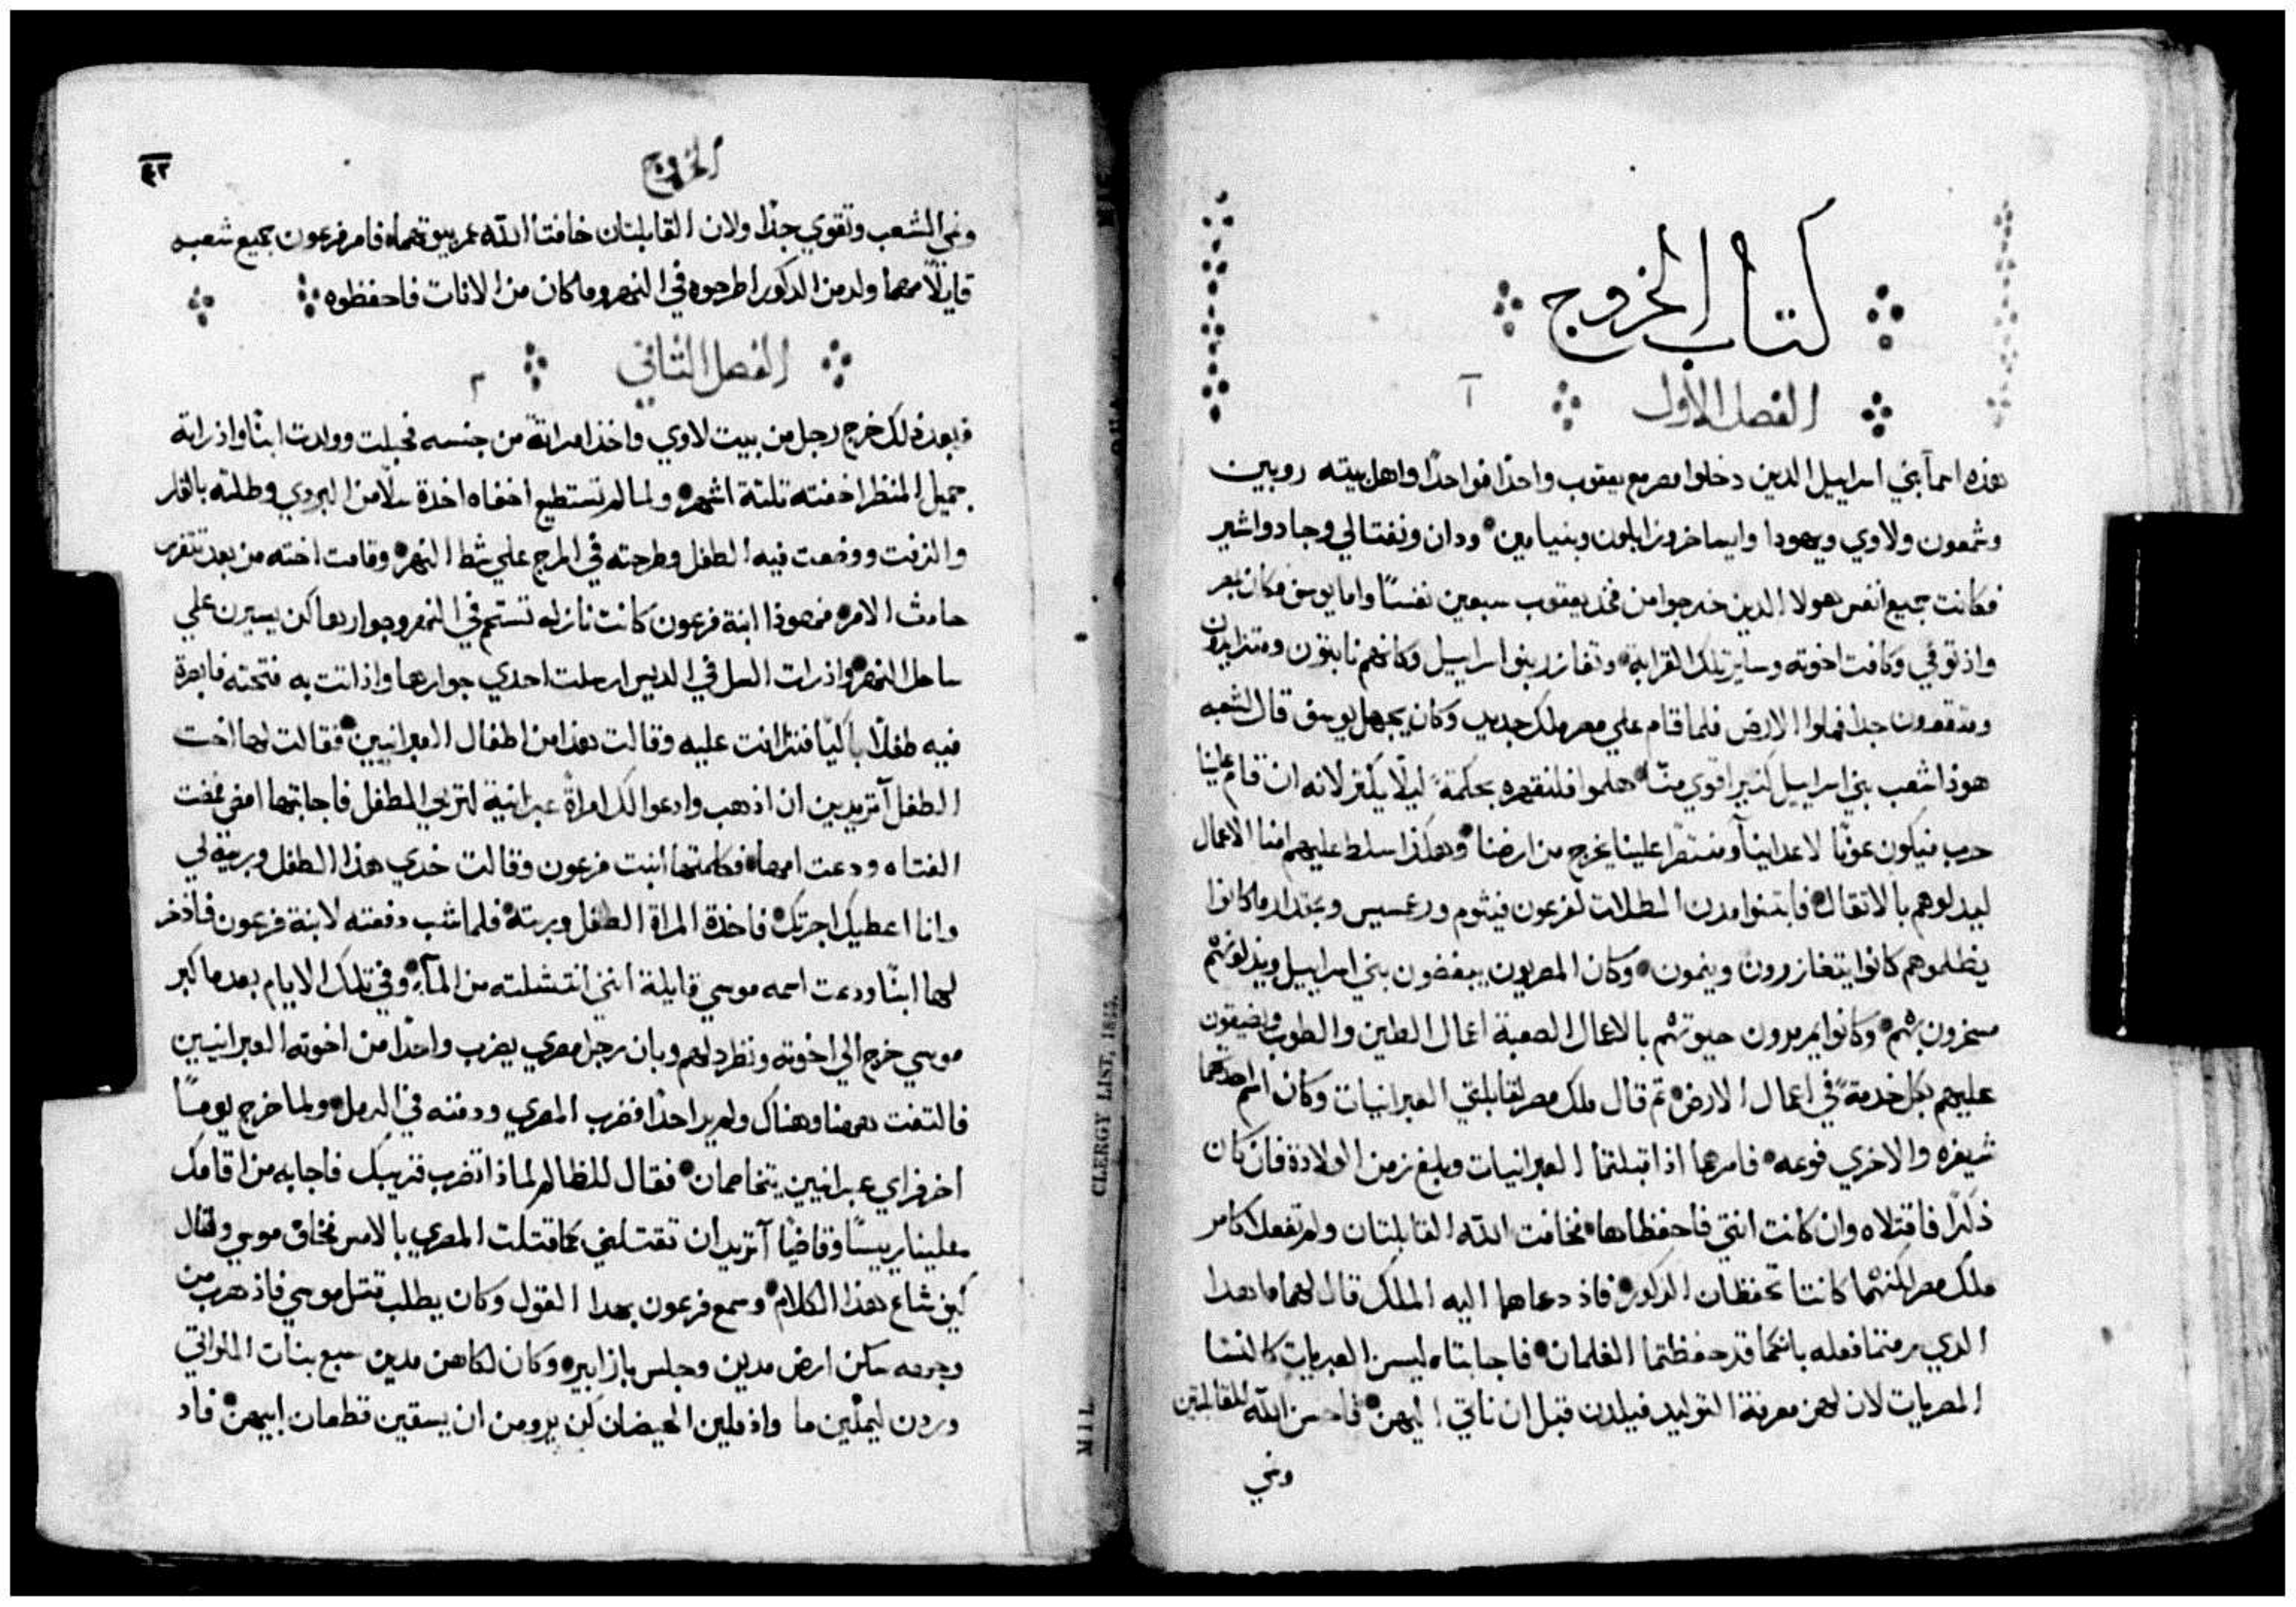 كتاب الخروج
الفصل الاول ١
هذه اسمآ بني اسراييل الدين دخلوا مصر مع يعقوب واحدًا فواحدًا واهل بيته روبين
وشمعون ولاوي ويهودا وايساخر وزابلون وبنيامين ودان ونفتالي وجاد واشير
فكانت جميع انفس هولا الدين خرجوا من فخد يعقوب سبعين نفسًا واما يوسف فكان بمصر
واذ توفي وكافت اخوته وساير تلك القرابة وتغازر بنوا اسراييل وكانهم نابتون ومتزايدون
ومتقوون جدا فملوا الارض فلما قام علي مصر ملك جديد وكان يجهل يوسف قال لشعبه
هوذا شعب بني اسراييل كتير اقوي منّا هلموا فلنقهره بحكمةً ليلًا يكتر لانه ان قام علينا
حرب فيكون عونًا لاعداينا ومنتصرًا علينا يخرج من ارضنا وهكذا سلط عليهم امنا الاعمال
ليدلوهم بالاتقال فابتنوا مدن المظلات لفرعون فيثوم ورعمسيس وبمقدار ما كانوا
يظلموهم كانوا يتغازرون وينمون وكان المصريون يبغضون بني اسراييل ويذلونهم
مسخرون بهم وكانوا يمررون حيوتهم بالاعمال الصعبة اعمال الطين والطوب ويضيقون
عليهم بكل خدمةً في اعمال الارض تم قال ملك مصر لقابلتي العبرانيات وكان اسم احدهما
شيفره والاخري فوعه فامرهما اذا قبلتما العبرانيات وبلغ زمن الولادة فان كان
ذكرًا فاقتلاه وان كانت انتي فاحفظاها فخافت الله القابلتان ولم تفعلا كامر
ملك مصر لكنهما كانتا تحفظان الدكور فاذ دعاهما اليه الملك قال لهما ما هدا
الدي رمتما فعله بانكما قد حفظتما الغلمان فاجابتاه ليسن العبريات كالنسا
المصريات لان لهن معرفة التوليد فيلدن قبل ان ناتي اليهن فاحسن الله للقابلتين
ونمي
الخروج
٤٢
ونمي الشعب وتقوي جدًا ولان القابلتان خافتا الله عمر بيوتهما فامر فرعون جميع شعبه
قايلًا مهما ولد من الدكور اطرحوه في النهر وما كان من الانات فاحفظوه
الفصل التاني ٢
فبعد ذلك خرج رجل من بيت لاوي واخذ امراتةً من جنسه فحبلت وولدت ابنًا واذ راته
جميل المنظر اخفته تلتة اشهر ولما لم تستطيع اخفاه اخدة سلًا من البردي وطلته بالقار
والزفت ووضعت فيه الطفل وطرحته في المرج علي شط النهر وقامت اخته من بعد تتفرس
حادث الامر فهوذا ابنة فرعون كانت نازله تستحم في النهر وجوارها كن يسيرن علي
ساحل النهر واذ رات السل في الديس ارسلت احدي جوارها واذ اتت به فتحته فابصرة
فيه طفلًا باكيًا فترافت عليه وقالت هذا من اطفال العبرانيين فقالت لها اخت
الطفل آتريدين ان اذهب وادعوا لك امراةً عبرانية لتربي الطفل فاجابتها امض فمضت
الفتاه ودعت امها فكلمتها ابنت فرعون وقالت خدي هذا الطفل وربيه لي
وانا اعطيك اجرتك فاخذة المراة الطفل وربته فلما شب دفعته لابنة فرعون فاتخذ
لها ابنًا ودعت اسمه موسي قايلة انني انتشلته من المآ وفي تلك الايام بعد ما كبر
موسي خرج الي اخوته ونظر دلهم وبان رجل مصري يضرب واحدًا من اخوته العبرانيين
فالتفت ههنا وهناك ولم ير احدًا فضرب المصري ودفنه في الرمل ولما خرج يومًا
اخر فراي عبرانيين يتخاصمان فقال للظالم لماذا تضرب قريبك فاجابه من اقامك
علينا رييسًا وقاضيًا آتريد ان تقتلني كما قتلت المصري بالامس فخاف موسي وقال
كيف شاع هذا الكلام وسمع فرعون بهدا القول وكان يطلب قتل موسي فاذ هرب من
وجهه سكن ارض مدين وجلس بازا بير وكان لكاهن مدين سبع بنات اللواتي
وردن ليملين ما واذ ملين الحيضان كن يرومن ان يسقين قطعان ابيهن فاد
CLERGY LIST, 1855.